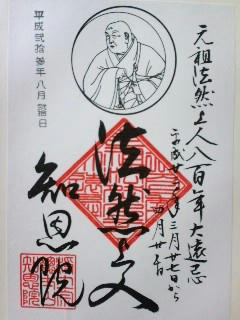 元祖法然上人八百年大遠忌
平成廿三年三月廿七日から
四月廿五日
法然上人
知恩院
平成弐拾参年八月 日